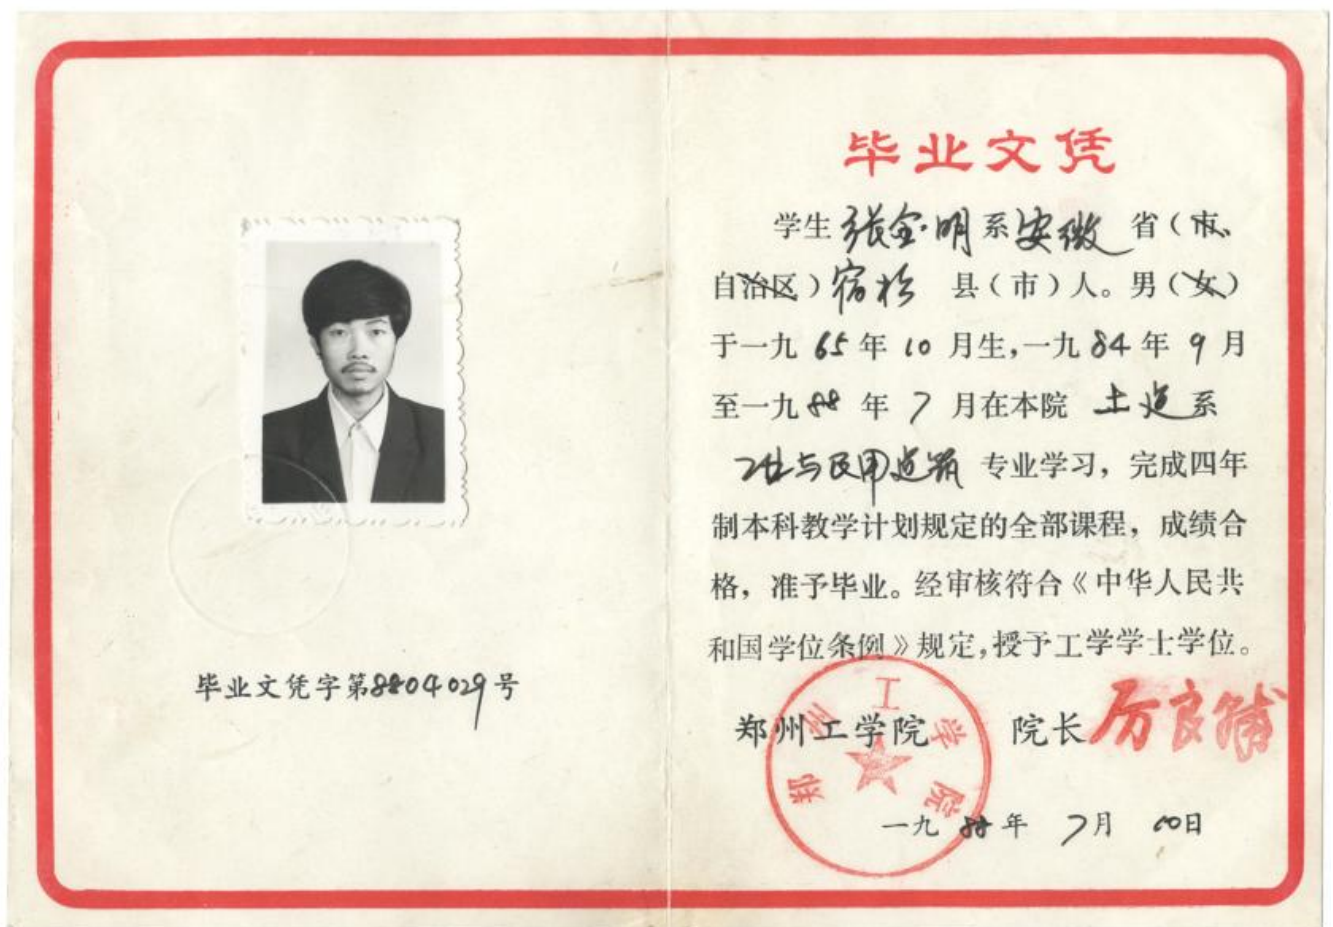 毕业文凭字第8804029号
毕业文凭
学生张金明系安徽省（市、
自治区）宿松 县（市）人。男（女）
于一九65年10月生，一九84年9月
至一九88年7月在本院 土建系
工业与民用建筑 专业学习，完成四年
制本科教学计划规定的全部课程，成绩合
格，准予毕业。经审核符合《中华人民共
和国学位条例》规定，授予工学学士学位。
郑州工学院 院长厉良辅
郑州工学院
一九88年7月10日